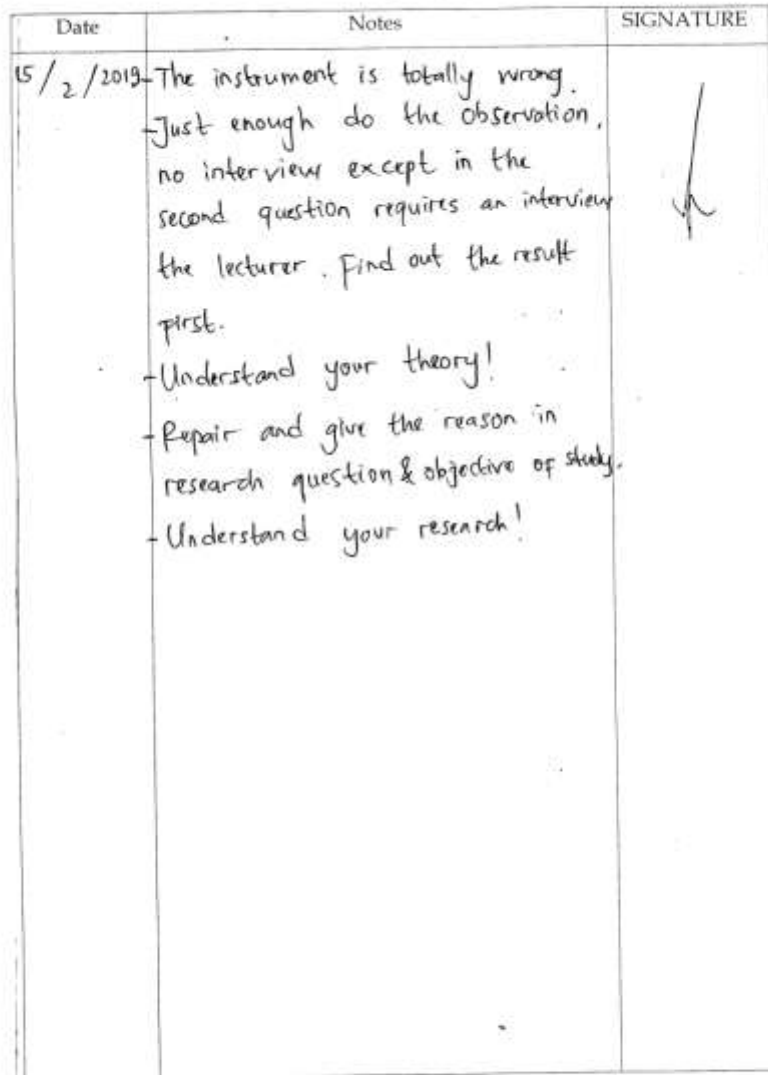 Date Notes SIGNATURE
15/2/2019 - The instrument is totally wrong.
- Just enough do the observation,
no interview except in the
second question requires an interview
the lecturer. Find out the result
first.
- Understand your theory!
- Repair and give the reason in
research question & objective of study.
- Understand your research!